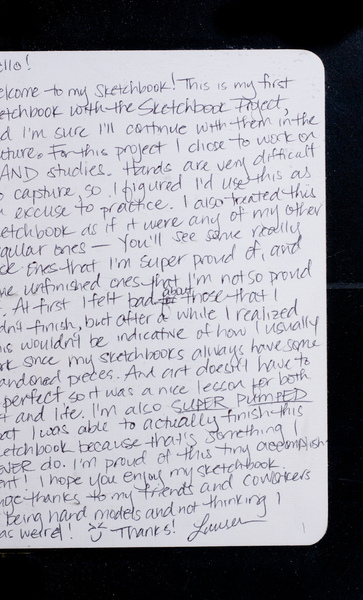 ello!
elcome to my sketchbook! This is my first
etchbook with the Sketchbook Project,
d I'm sure I'll continue with them in the
uture. For this project I chose to work on
AND studies. Hands are very difficult
o capture, so I figured I'd use this as
n excuse to practice. I also treated this
etchbook as if it were any of my other
gular ones — You'll see some really
ones that I'm super proud of, and
me unfinished ones that I'm not so proud
. At first I felt bad about those that I
dn't finish, but after a while I realized
is wouldn't be indicative of how I usually
rk since my sketchbooks always have some
andoned pieces. And art doesn't have to
perfect so it was a nice lesson for both
t and life. I'm also SUPER PUMPED
at I was able to actually finish this
etchbook because that's something I
EVER do. I'm proud of this tiny accomplish-
ent! I hope you enjoy my sketchbook.
uge thanks to my friends and coworkers
being hand models and not thinking I
as weird! Thanks! Lauren